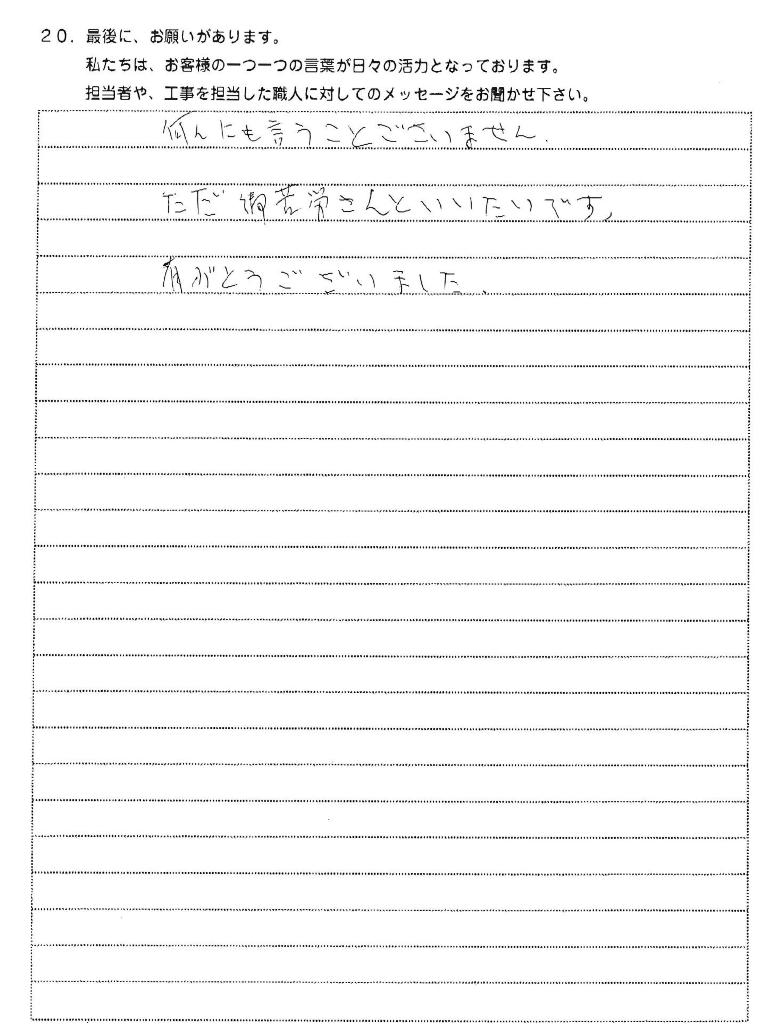 20. 最後に、お願いがあります。
私たちは、お客様の一つ一つの言葉が日々の活力となっております。
担当者や、工事を担当した職人に対してのメッセージをお聞かせ下さい。
何んにも言うことございません.
ただ御苦労さんといいたいです。
有がとうございました.